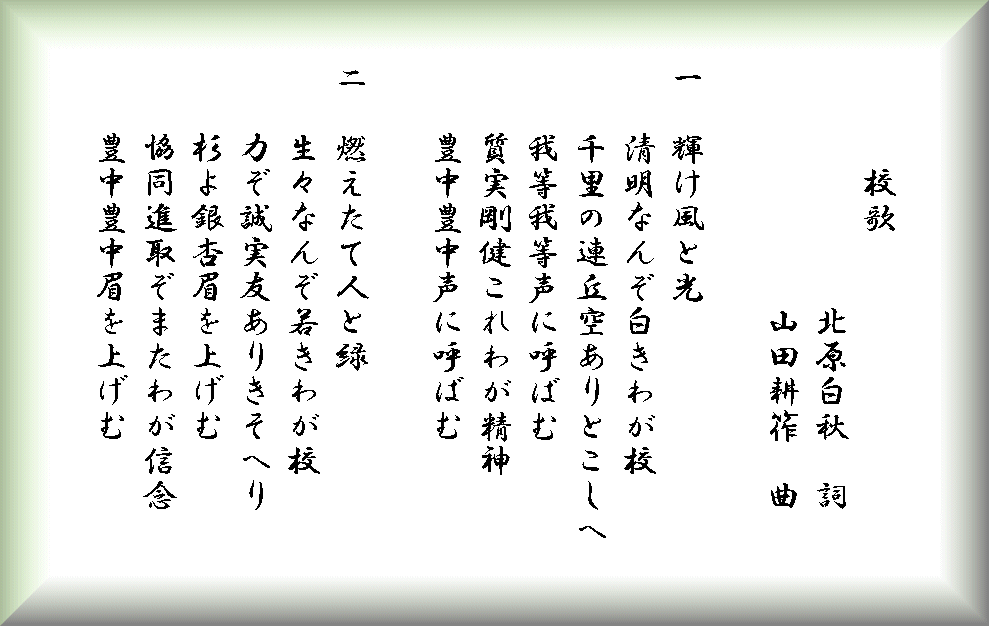 校歌
北原白秋 詞
山田耕筰 曲
一 輝け風と光
清明なんぞ白きわが校
千里の連丘空ありとこしへ
我等我等声に呼ばむ
質実剛健これわが精神
豊中豊中声に呼ばむ
二 燃えたて人と緑
生々なんぞ若きわが校
力ぞ誠実友ありきそへり
杉よ銀杏眉を上げむ
協同進取ぞまたわが信念
豊中豊中眉を上げむ